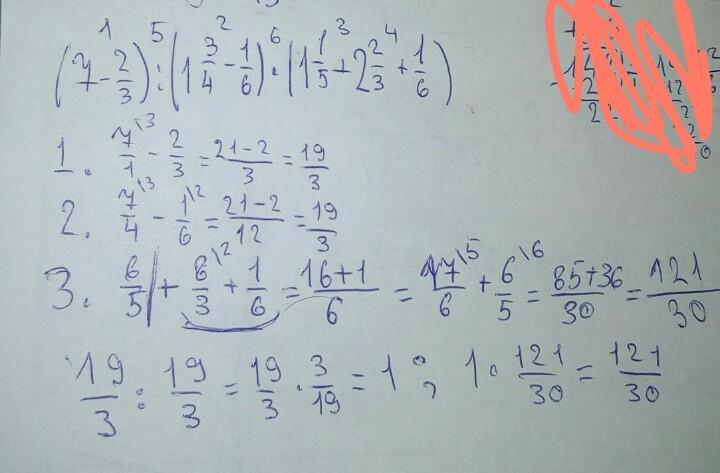 1 5 2 6 3 4
(7 - 2/3) : (1 3/4 - 1/6) · (1 1/5 + 2 2/3 + 1/6)
1. 7/1 \3 - 2/3 = 21-2/3 = 19/3
2. 7/4 \3 - 1/6 \2 = 21-2/12 = 19/3
3. 6/5 | + 8/3 \2 + 1/6 = 16+1/6 = 17/6 \5 + 6/5 \6 = 85+36/30 = 121/30
19/3 : 19/3 = 19/3 · 3/19 = 1 ; 1 · 121/30 = 121/30